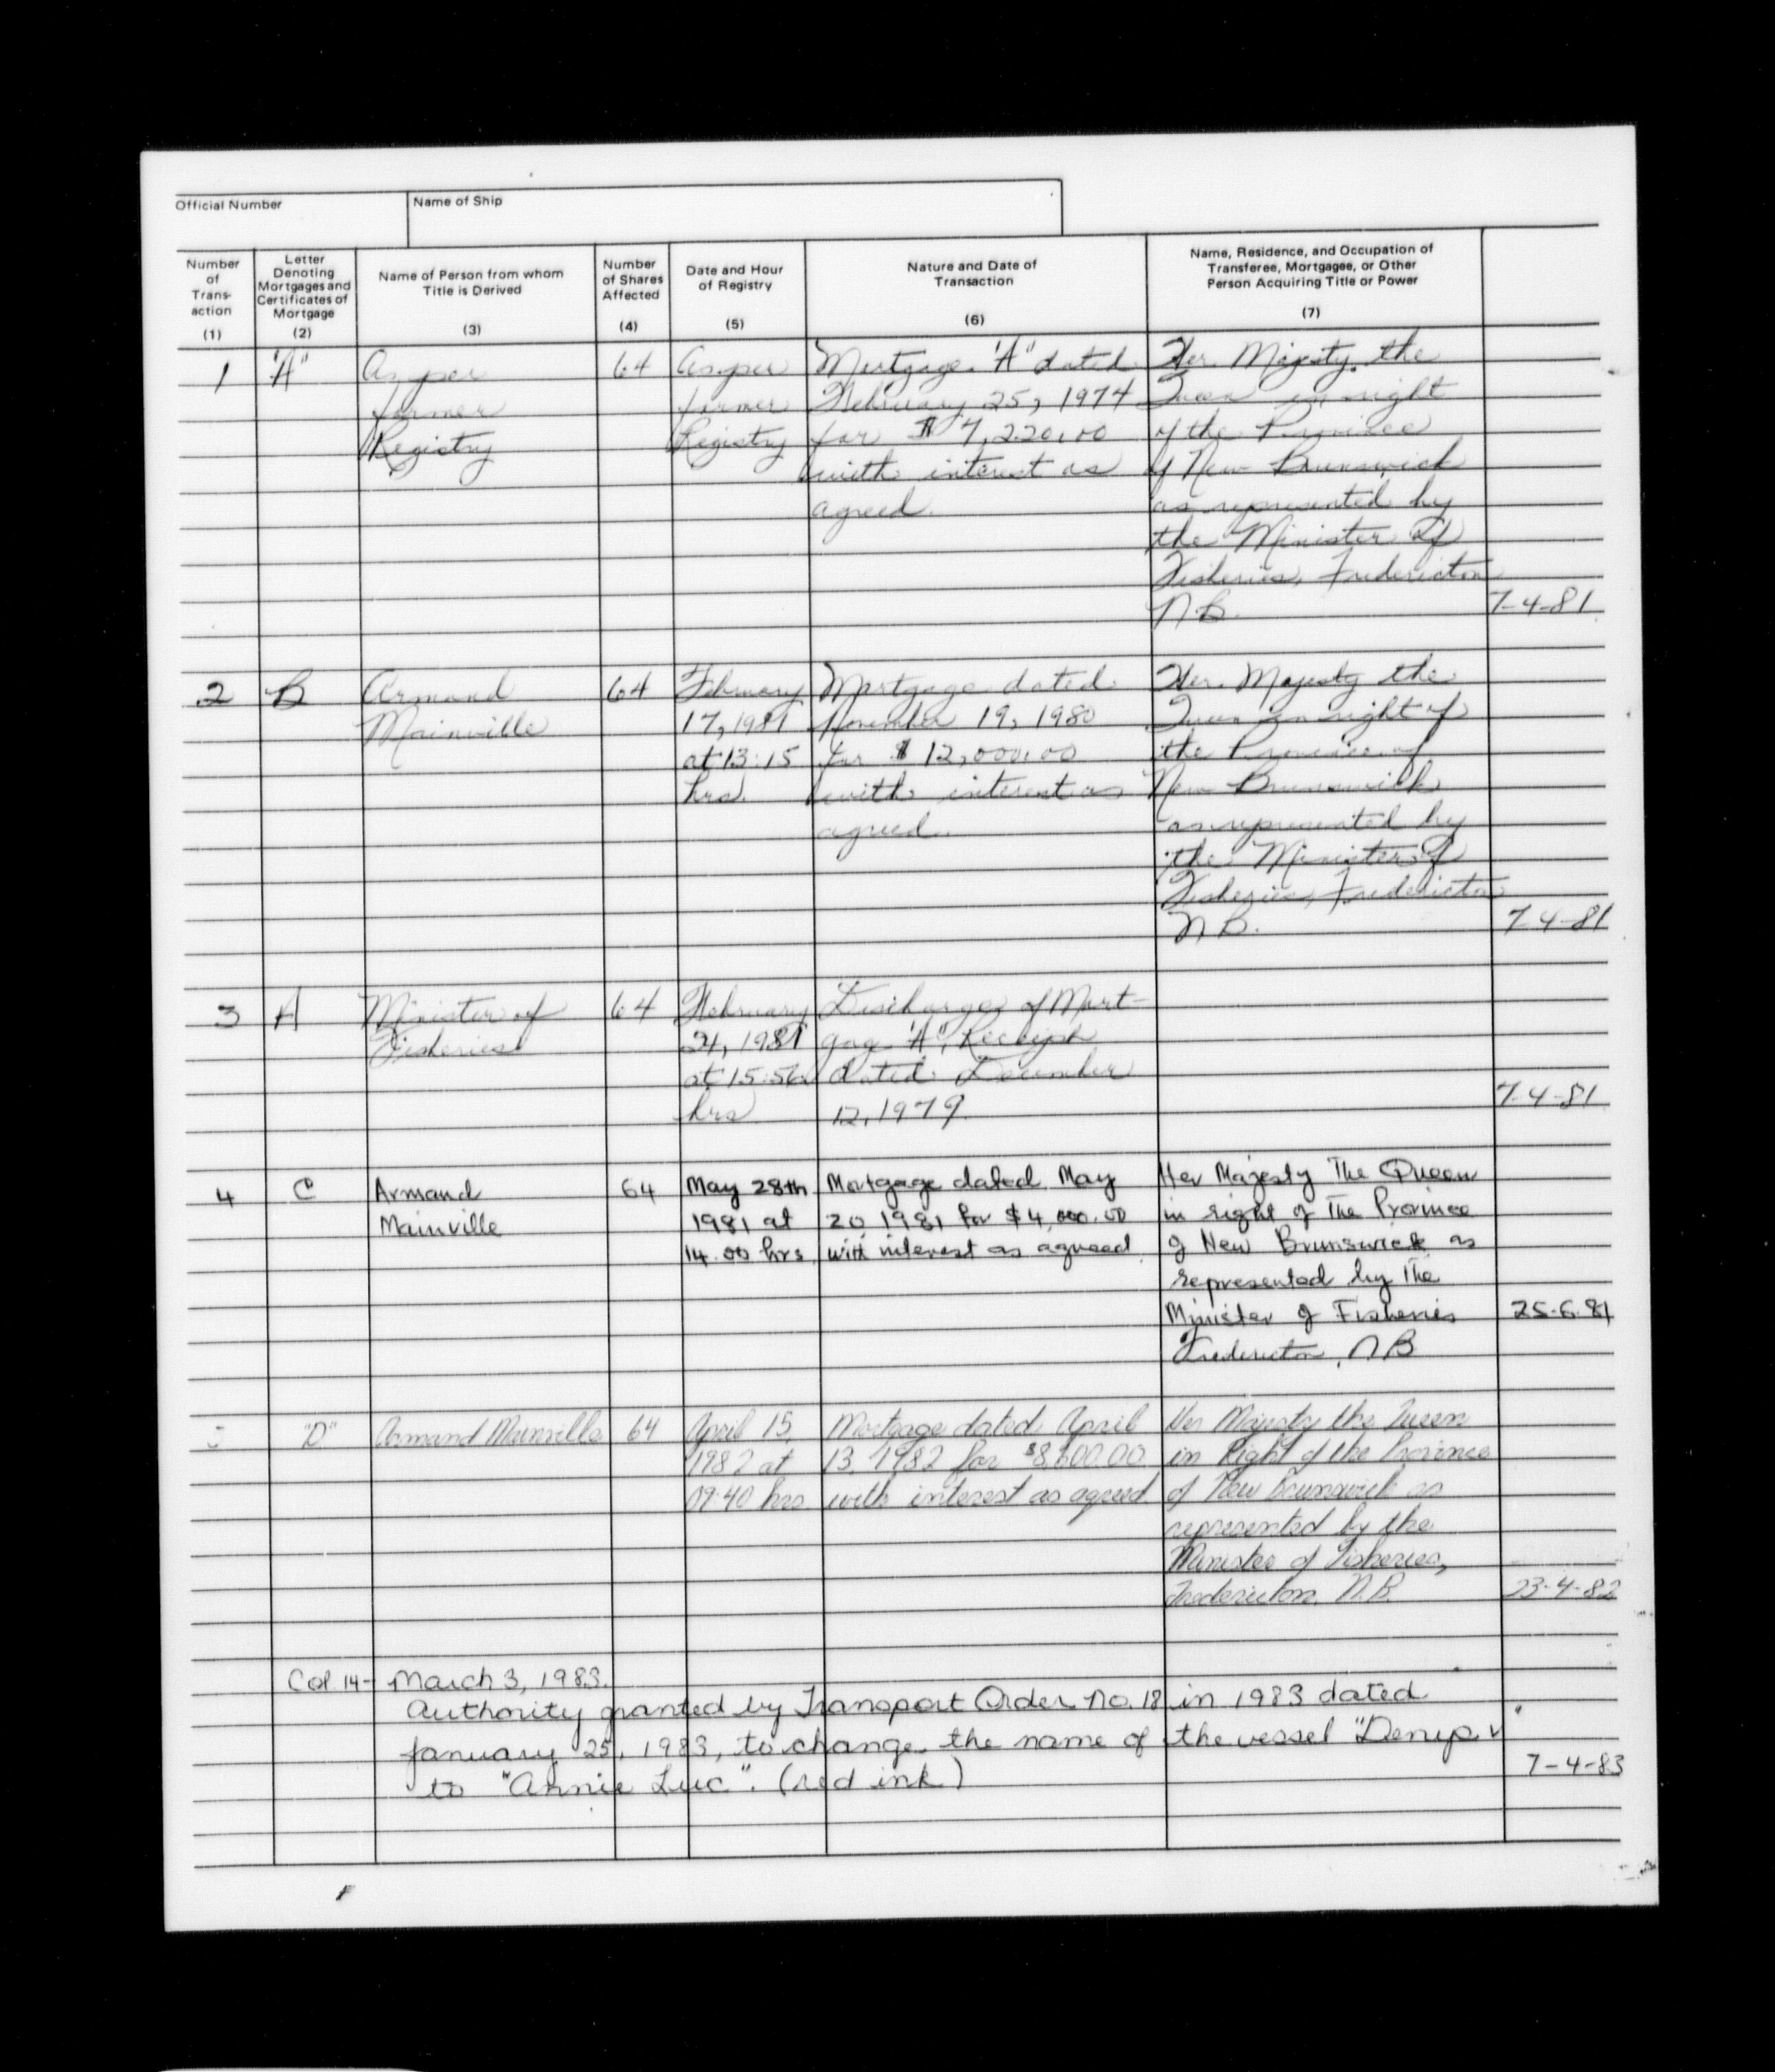 Official Number
Name of Ship
Number of Transaction (1)
Letter Denoting Mortgages and Certificates of Mortgage (2)
Name of Person from whom Title is Derived (3)
Number of Shares Affected (4)
Date and Hour of Registry (5)
Nature and Date of Transaction (6)
Name, Residence, and Occupation of Transferee, Mortgagee, or Other Person Acquiring Title or Power (7)
1 "A" As per 64 As per Mortgage "A" dated Her Majesty the
former former February 25, 1974 Queen in right
Registry Registry for $ 7,220.00 of the Province
with interest as of New Brunswick
agreed. as represented by
the Minister of
Fisheries, Fredericton
N.B. 7-4-81
2 B Armand 64 February Mortgage dated Her Majesty the
Mainville 17, 1981 November 19, 1980 Queen in right of
at 13:15 for $ 12,000.00 the Province of
hrs. with interest as New Brunswick
agreed. as represented by
the Minister of
Fisheries, Fredericton
N.B. 7-4-81
3 A Minister of 64 February Discharge of Mort-
Fisheries 24, 1981 gage "A", Receipt
at 15:56 dated December
hrs 12, 1979. 7-4-81
4 C Armand 64 May 28th Mortgage dated May Her Majesty The Queen
Mainville 1981 at 20, 1981 for $4,000.00 in right of The Province
14.00 hrs. with interest as agreed of New Brunswick as
represented by The
Minister of Fisheries 25-6-81
Fredericton, N B
"D" Armand Mainville 64 April 15, Mortgage dated April Her Majesty the Queen
1982 at 13, 1982 for in Right of the Province
09:40 hrs with interest as agreed of New Brunswick as
represented by the
Minister of Fisheries,
Fredericton, N.B. 23-4-82
Col 14- March 3, 1983.
Authority granted by Transport Order No. 18 in 1983 dated
January 25, 1983, to change the name of the vessel "Denys V"
to "Annie Luc". (red ink) 7-4-83